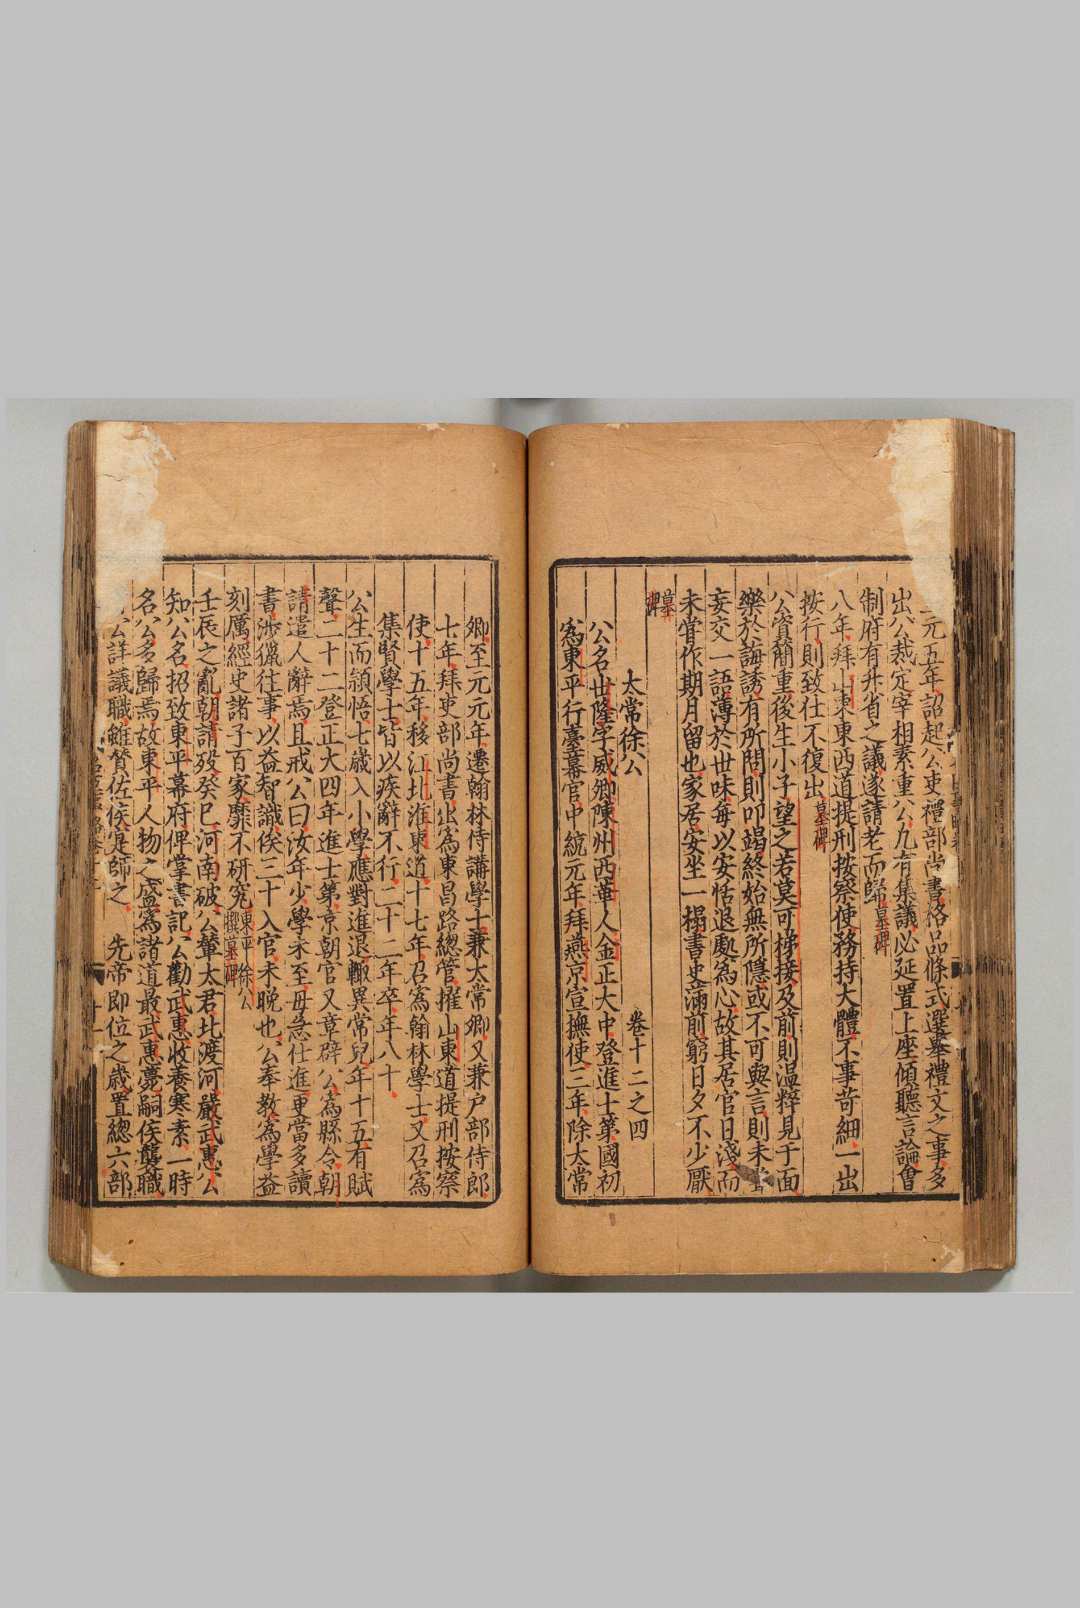 元五年詔起公吏禮部尚書格品條式選舉禮文之事多
出公裁定宰相素重公凡有集議必延置上座傾聽言論會
制府有升省之議遂請老而歸墓碑
八年拜山東東西道提刑按察使務持大體不事苛細一出
按行則致仕不復出墓碑
公資簡重後生小子望之若莫可梯接及前則温粹見于面
樂於誨誘有所問則叩竭終始無所隱或不可與言則未嘗
妄交一語薄於世味每以安恬退處為心故其居官日淺而
未嘗作期月留也家居安坐一榻書史滿前窮日夕不少厭
墓碑
太常徐公 卷十二之四
公名世隆字威卿陳州西華人金正大中登進士第國初
為東平行臺幕官中統元年拜燕京宣撫使三年除太常
卿至元元年遷翰林侍講學士兼太常卿又兼户部侍郎
七年拜吏部尚書出為東昌路總管擢山東道提刑按察
使十五年移江北淮東道十七年召為翰林學士又召為
集賢學士皆以疾辭不行二十二年卒年八十
公生而頴悟七歲入小學應對進退輙異常兒年十五有賦
聲二十二登正大四年進士第京朝官又章辟公為縣令朝
請遣人辭焉且戒公曰汝年少學未至毋急仕進更當多讀
書渉獵往事以益智識俟三十入官未晚也公奉教為學益
刻厲經史諸子百家靡不研究東平徐公撰墓碑
壬辰之亂朝請歿癸巳河南破公輦太君北渡河嚴武惠公
知公名招致東平幕府俾掌書記公勸武惠收養寒素一時
名公多歸焉故東平人物之盛為諸道最武惠薨嗣侯襲職
公詳議職雖賛佐侯寔師之 先帝即位之歲置總六部